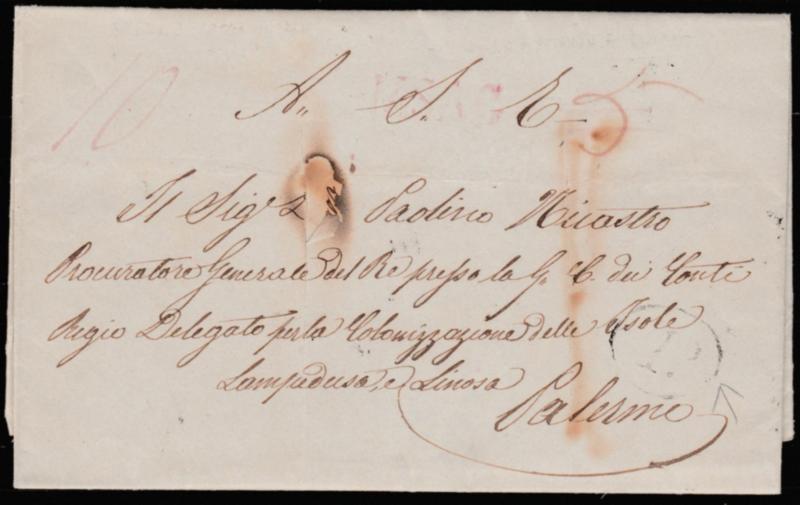 10
A,, S,, E,, 5
Il Sig.r D. Paolino Nicastro
Procuratore Generale del Re presso la G. C. dei Conti
Regio Delegato per la Colonizzazione delle Isole
Lampedusa, e Linosa
Palermo